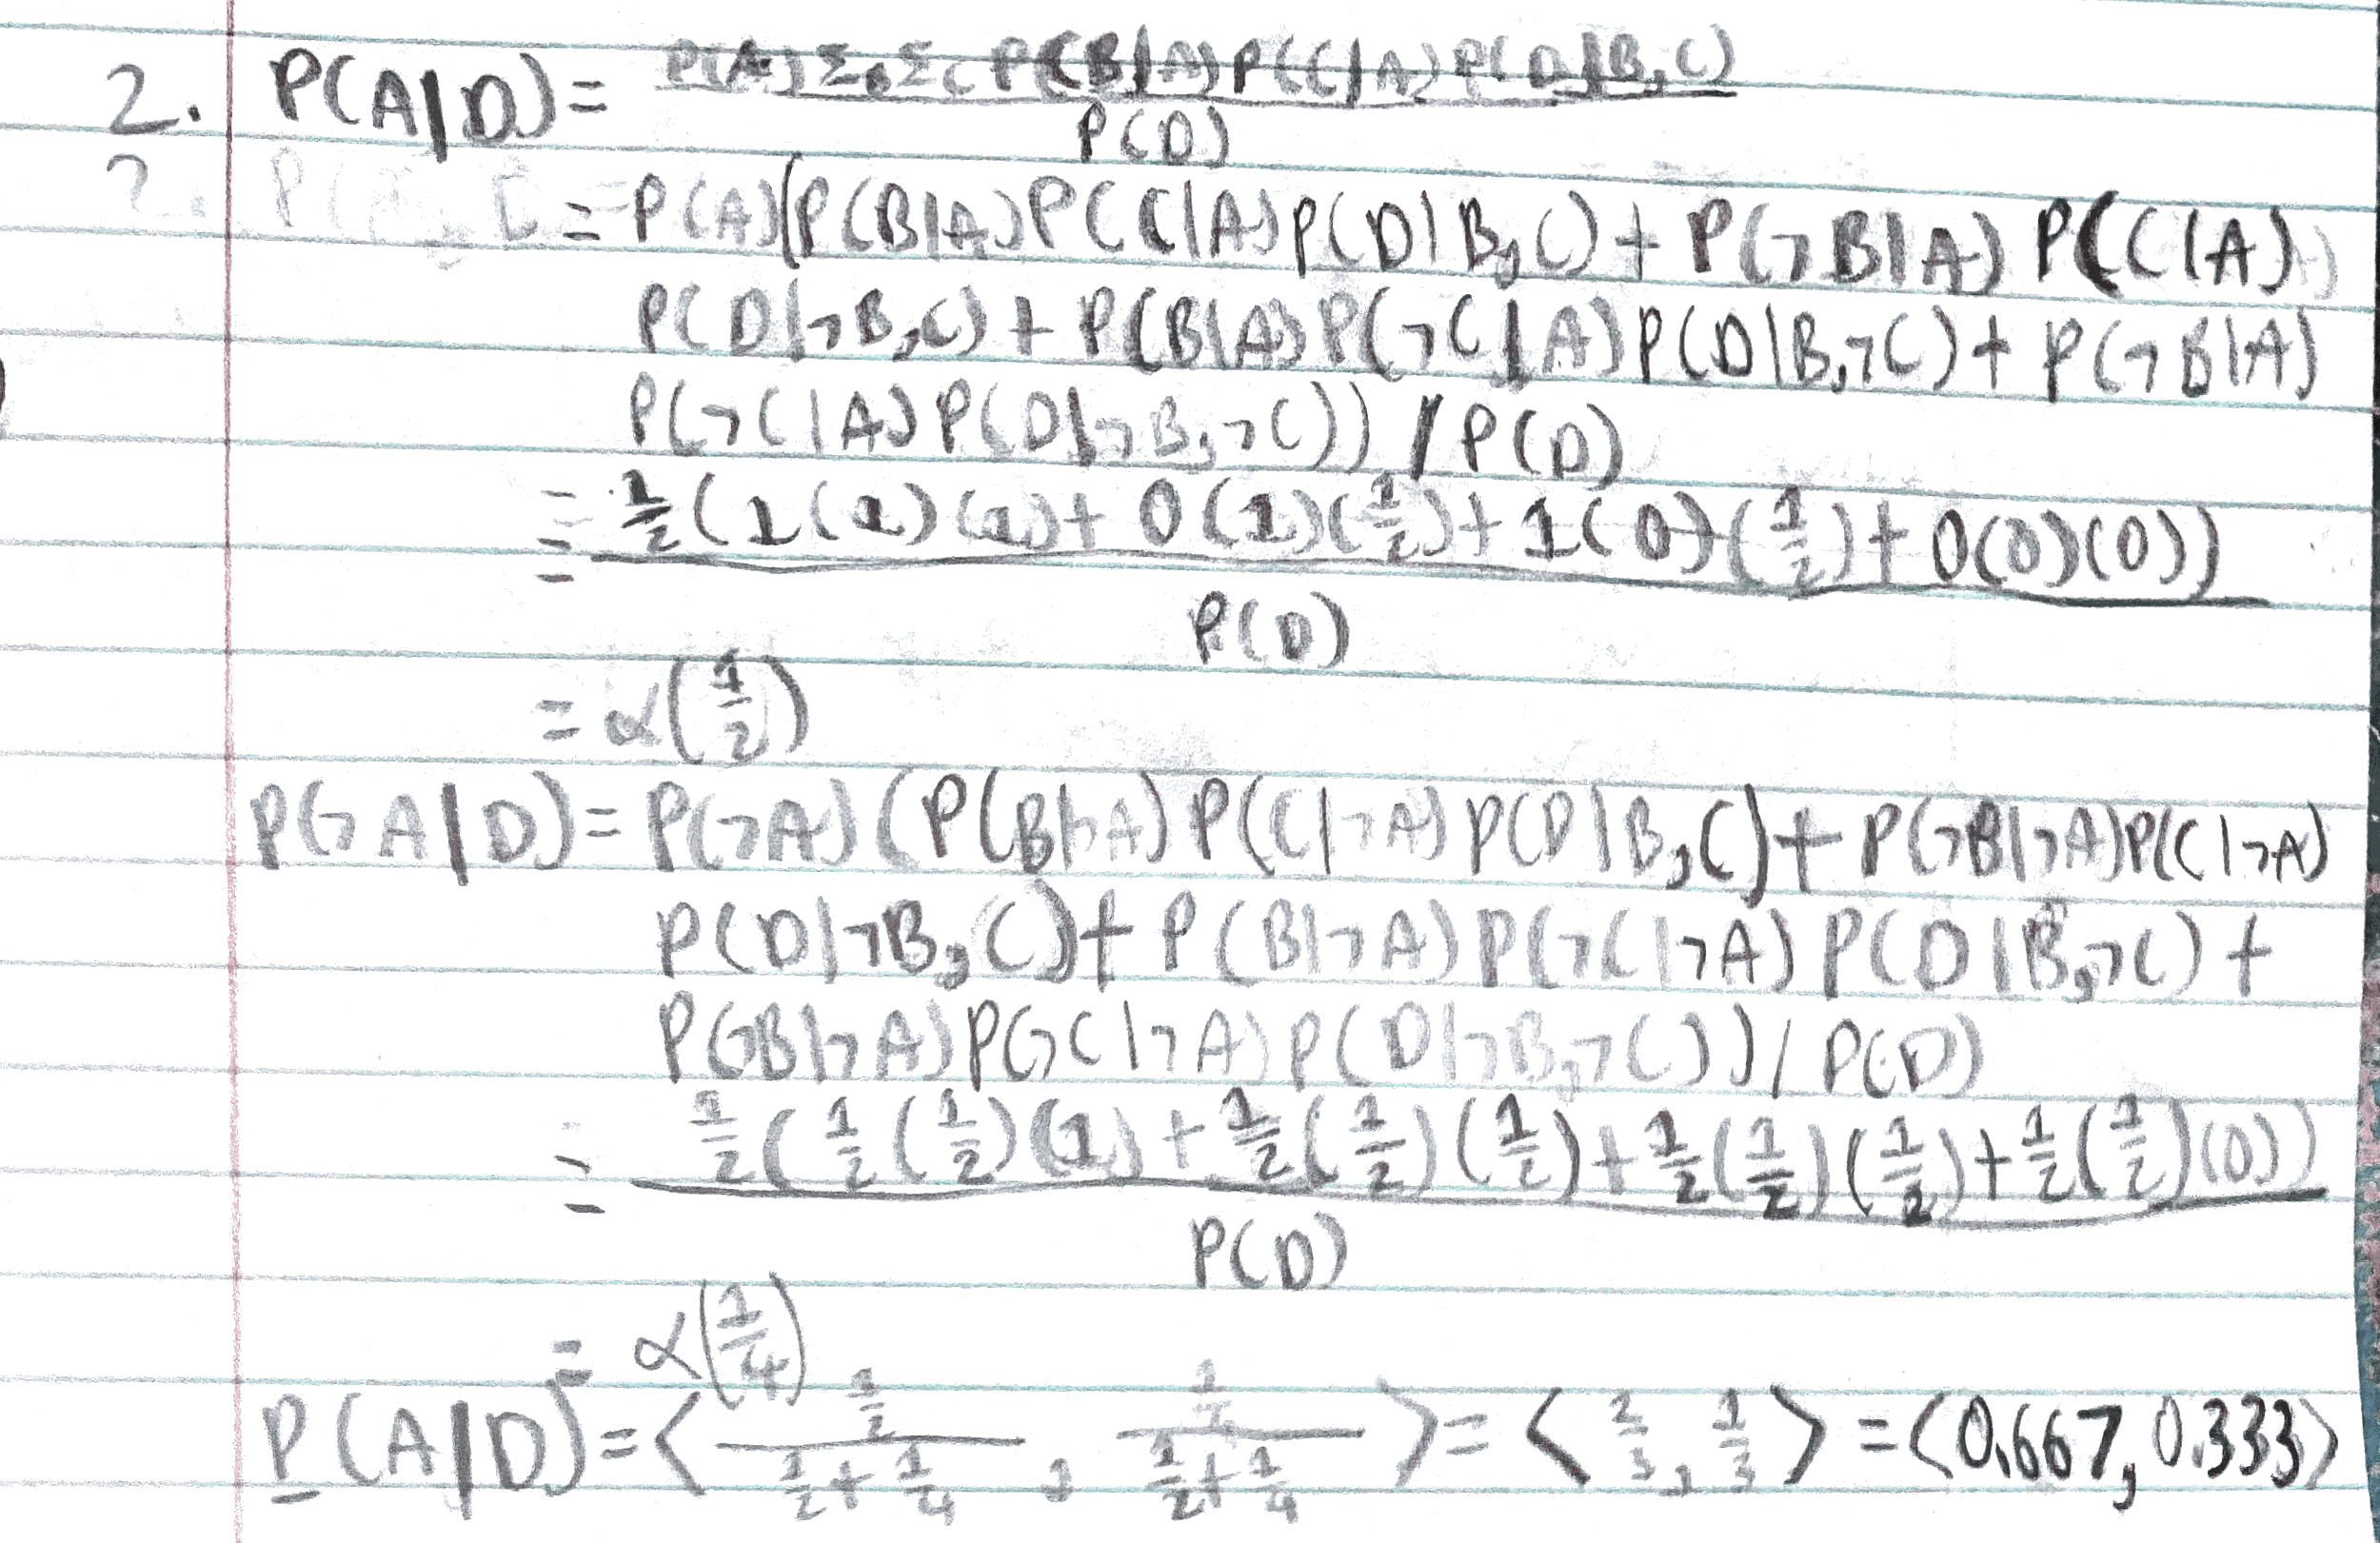 2. P(A|D) = P(A) Σ_B Σ_C P(B|A) P(C|A) P(D|B,C)
P(D)
= P(A)(P(B|A) P(C|A) P(D|B,C) + P(¬B|A) P(C|A)
P(D|¬B,C) + P(B|A) P(¬C|A) P(D|B,¬C) + P(¬B|A)
P(¬C|A) P(D|¬B,¬C)) / P(D)
= 1/2 (1(1)(1) + 0(1)(1/2) + 1(0)(1/2) + 0(0)(0))
P(D)
= α(1/2)
P(¬A|D) = P(¬A)(P(B|¬A) P(C|¬A) P(D|B,C) + P(¬B|¬A) P(C|¬A)
P(D|¬B,C) + P(B|¬A) P(¬C|¬A) P(D|B,¬C) +
P(¬B|¬A) P(¬C|¬A) P(D|¬B,¬C)) / P(D)
= 1/2 (1/2 (1/2)(1) + 1/2 (1/2)(1/2) + 1/2 (1/2)(1/2) + 1/2 (1/2)(0))
P(D)
= α(1/4)
P(A|D) = ⟨ 1/2 / (1/2 + 1/4) , / (1/2 + 1/4) ⟩ = ⟨ 2/3 , 1/3 ⟩ = ⟨0.667, 0.333⟩